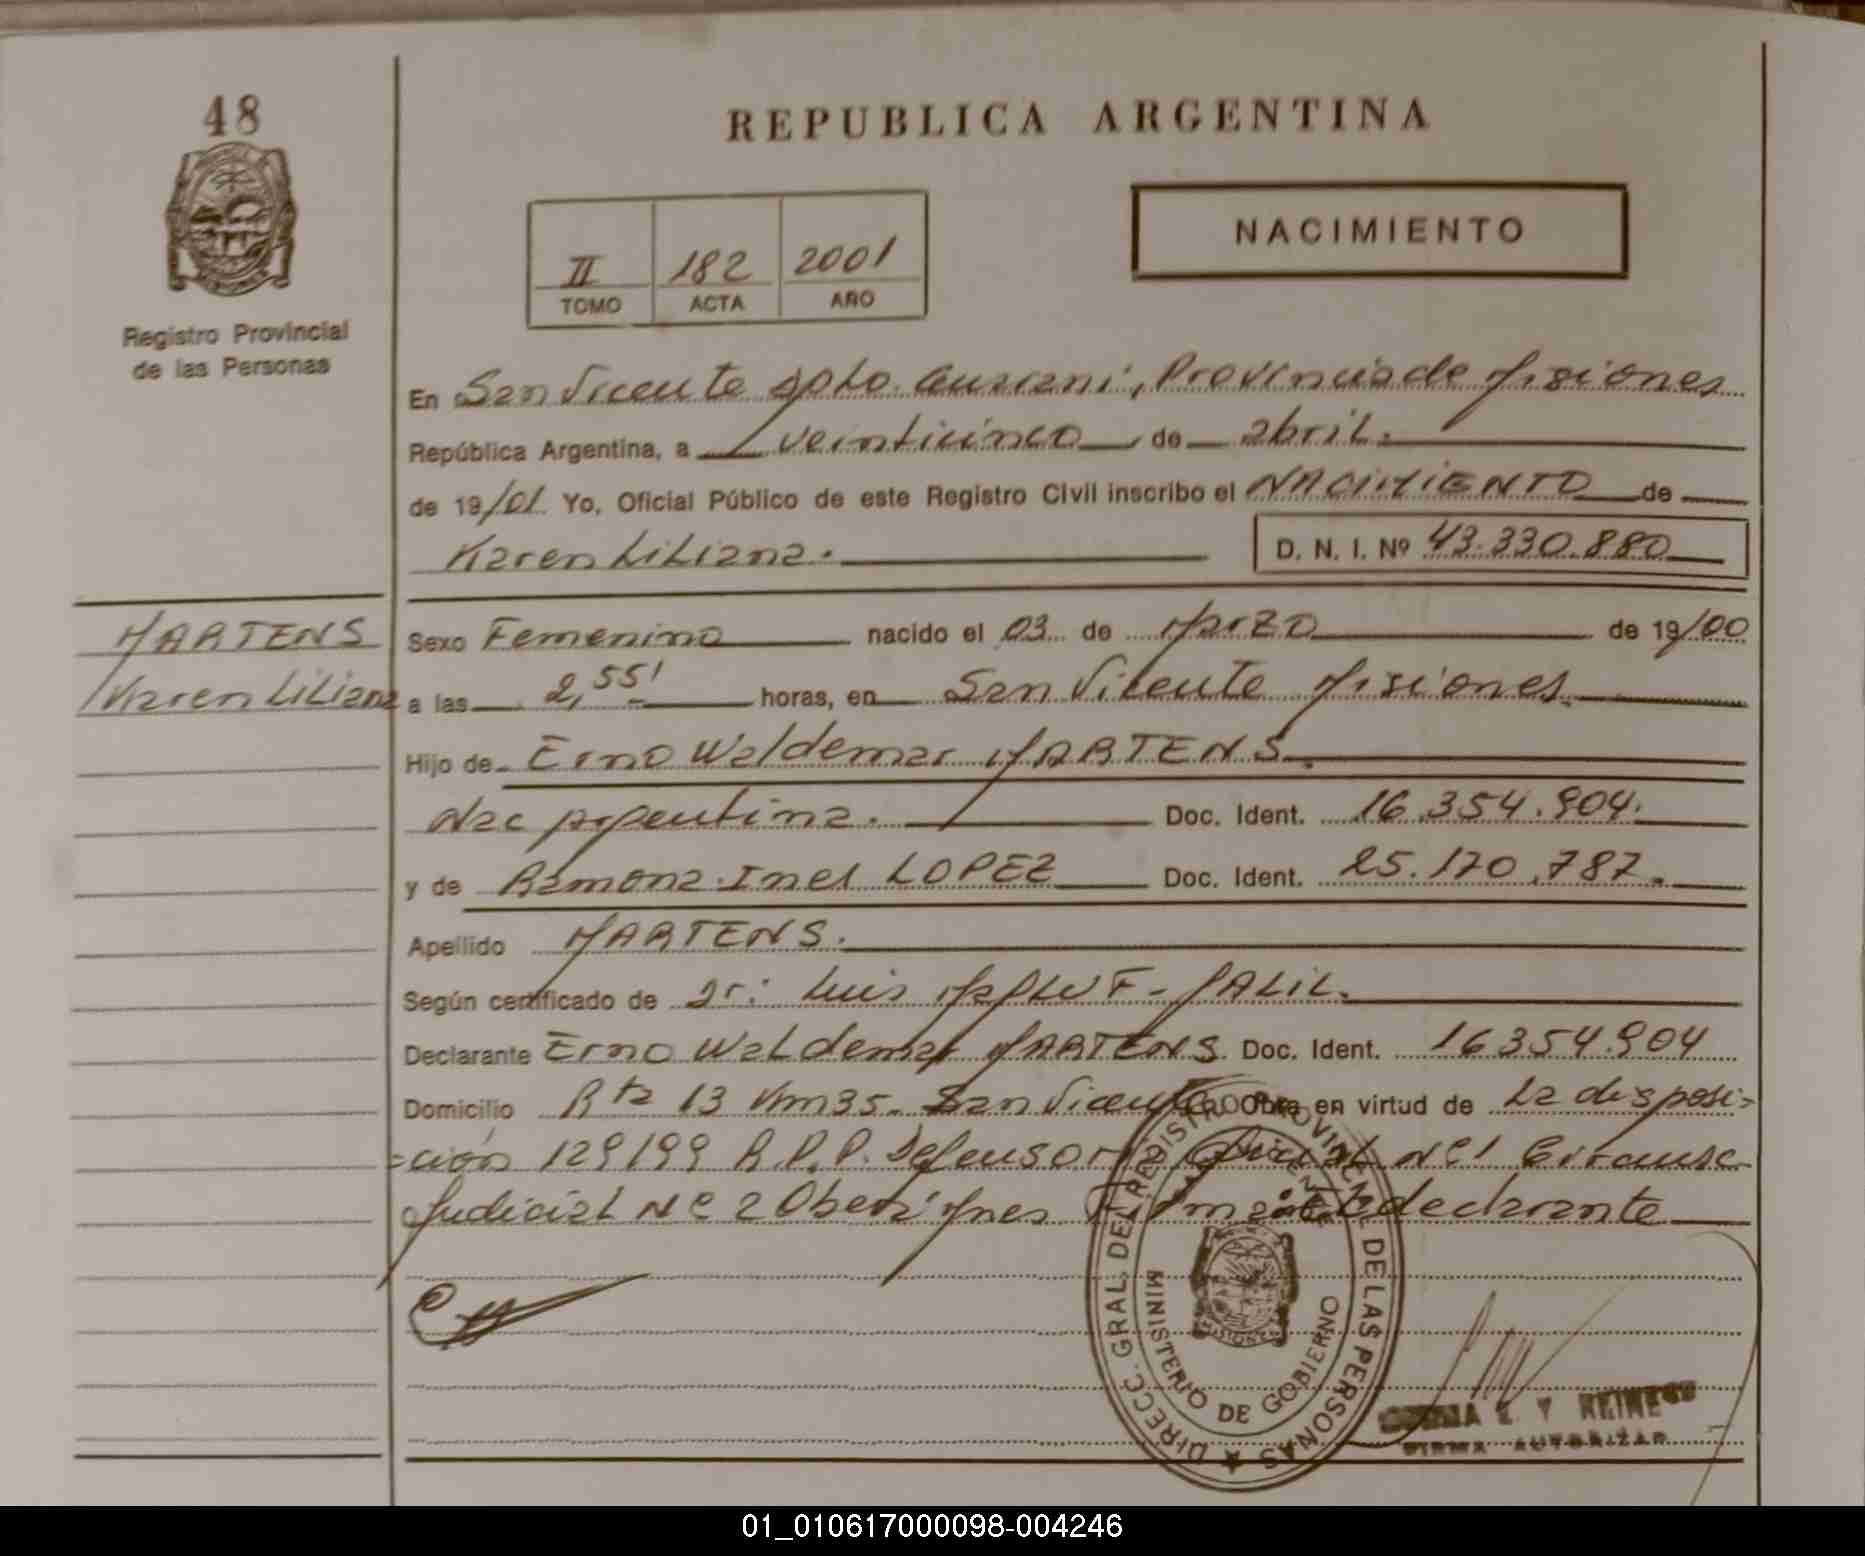 48
REPUBLICA ARGENTINA
NACIMIENTO
II 182 2001
TOMO ACTA AÑO
Registro Provincial
de las Personas
En San Vicente Dpto. Guarani, Provincia de Misiones
República Argentina, a veinticinco de abril.
de 19/01. Yo, Oficial Público de este Registro Civil inscribo el NACIMIENTO de
Karen Liliana. D. N. I. Nº 43.330.880
MARTENS
Karen Liliana
Sexo Femenino nacido el 03 de Marzo de 19/00
a las 2,55' horas, en San Vicente Misiones.
Hijo de Erno Waldemar MARTENS.
Nac Argentina. Doc. Ident. 16.354.904.
y de Ramona Ines LOPEZ Doc. Ident. 25.170.787.
Apellido MARTENS.
Según certificado de Dr: Luis JALIL.
Declarante Erno Waldemar MARTENS. Doc. Ident. 16354.904
Domicilio Rta 13 Km35. San Vicente Obra en virtud de La disposi-
-ción 129/99 R.P.P. Defensoria Oficial Nº1 Circunsc
Judicial Nº 2 Obera Mnes Firma: El declarante
DIRECC. GRAL. DEL REGISTRO PROVINCIAL DE LAS PERSONAS
MINISTERIO DE GOBIERNO
MISIONES
FIRMA AUTORIZAD
01_010617000098-004246